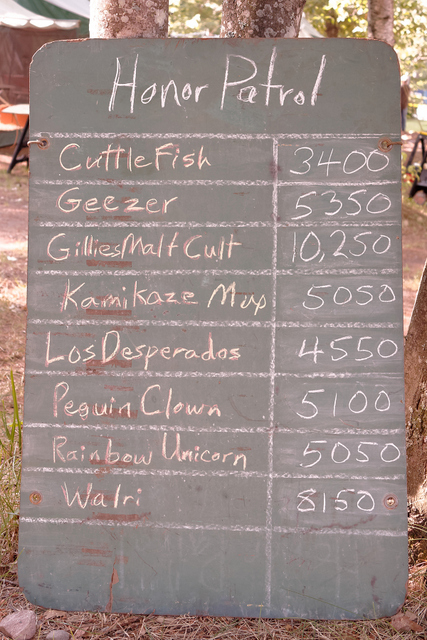 Honor Patrol
CuttleFish 3400
Geezer 5350
GilliesMalt Cult 10,250
Kamikaze Mop 5050
Los Desperados 4550
Peguin Clown 5100
Rainbow Unicorn 5050
Walri 8150